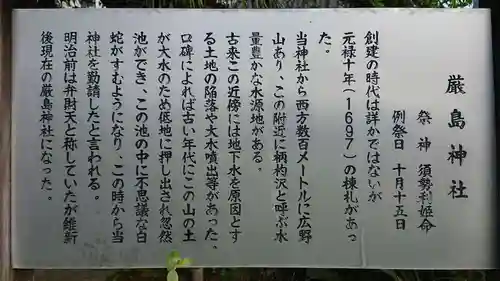 厳島神社
祭神　須勢利姫命
例祭日　十月十五日
創建の時代は詳かではないが
元禄十年（1697）の棟札があっ
た。
当神社から西方数百メートルに広野
山あり、この附近に柄杓沢と呼ぶ水
量豊かな水源地がある。
古来この近傍には地下水を原因とす
る土地の陥落や大水噴出等があった。
口碑によれば古い年代にこの山の土
が大水のため低地に押し出され忽然
池ができ、この池の中に不思議な白
蛇がすむようになり、この時から当
神社を勧請したと言われる。
明治前は弁財天と称していたが維新
後現在の厳島神社になった。